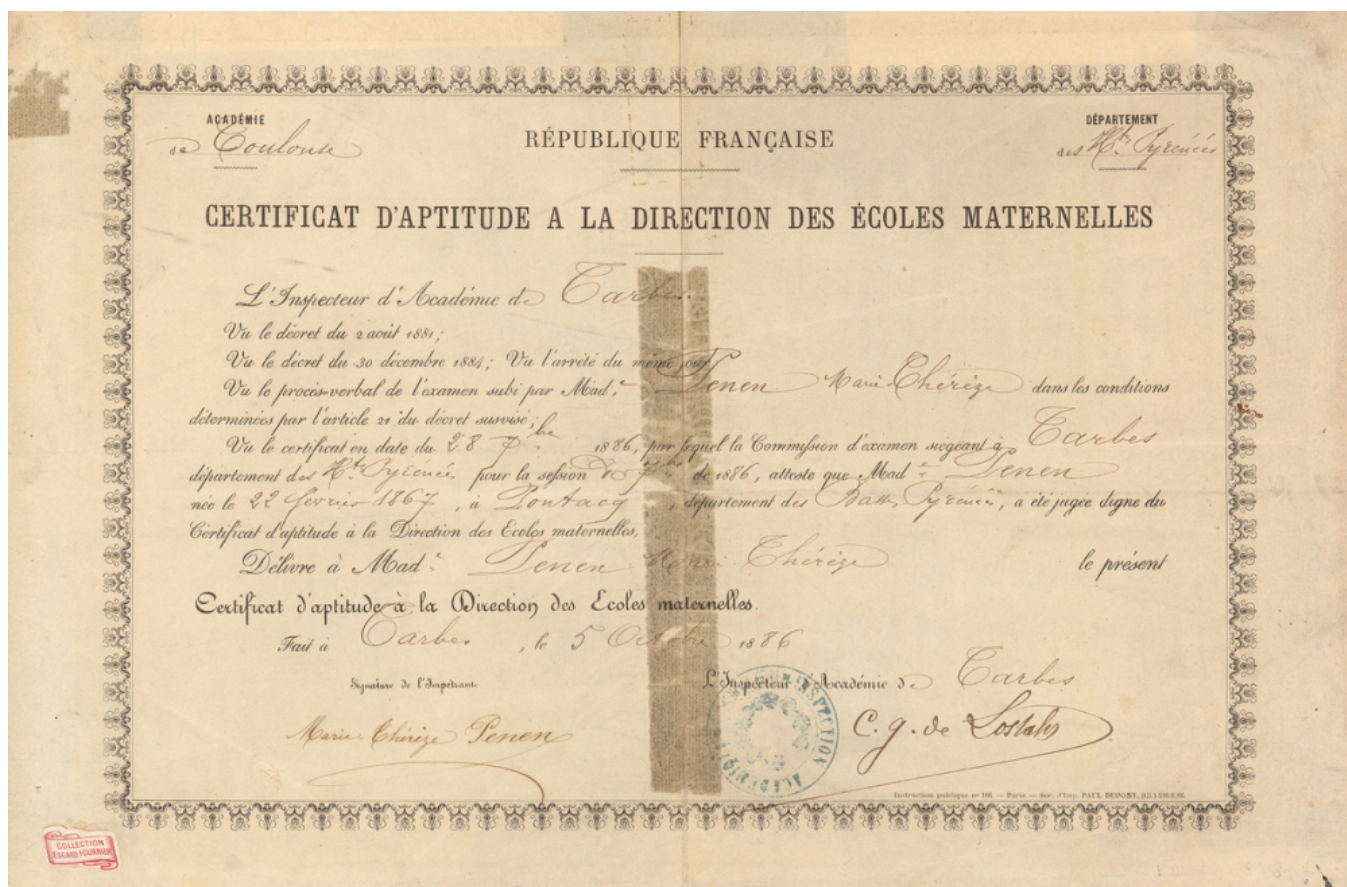 ACADÉMIE
de Toulouse
RÉPUBLIQUE FRANÇAISE
DÉPARTEMENT
des Htes Pyrénées
CERTIFICAT D'APTITUDE A LA DIRECTION DES ÉCOLES MATERNELLES
L'Inspecteur d'Académie de Tarbes
Vu le décret du 2 août 1881;
Vu le décret du 30 décembre 1884; Vu l'arrêté du même jour
Vu le procès-verbal de l'examen subi par Made Penen Marie-Thérèze dans les conditions
déterminées par l'article 21 du décret susvisé;
Vu le certificat en date du 28 7bre 1886, par lequel la Commission d'examen siégeant à Tarbes
département des Htes Pyrénées pour la session de 7bre de 1886, atteste que Made Penen
née le 22 février 1867, à Pontacq, département des Basses Pyrénées, a été jugée digne du
Certificat d'aptitude à la Direction des Ecoles maternelles,
Délivre à Made Penen Marie-Thérèze le présent
Certificat d'aptitude à la Direction des Ecoles maternelles.
Fait à Tarbes, le 5 Octobre 1886
Signature de l'Impétrante
L'Inspecteur d'Académie de Tarbes
Marie-Thérèze Penen
C. g. de Lostalo
INSPECTION ACADÉMIQUE
Instruction publique nº 166. — Paris. — Soc. d'Imp. PAUL DUPONT, (Cl.)
COLLECTION
ESCARD FOURNIER